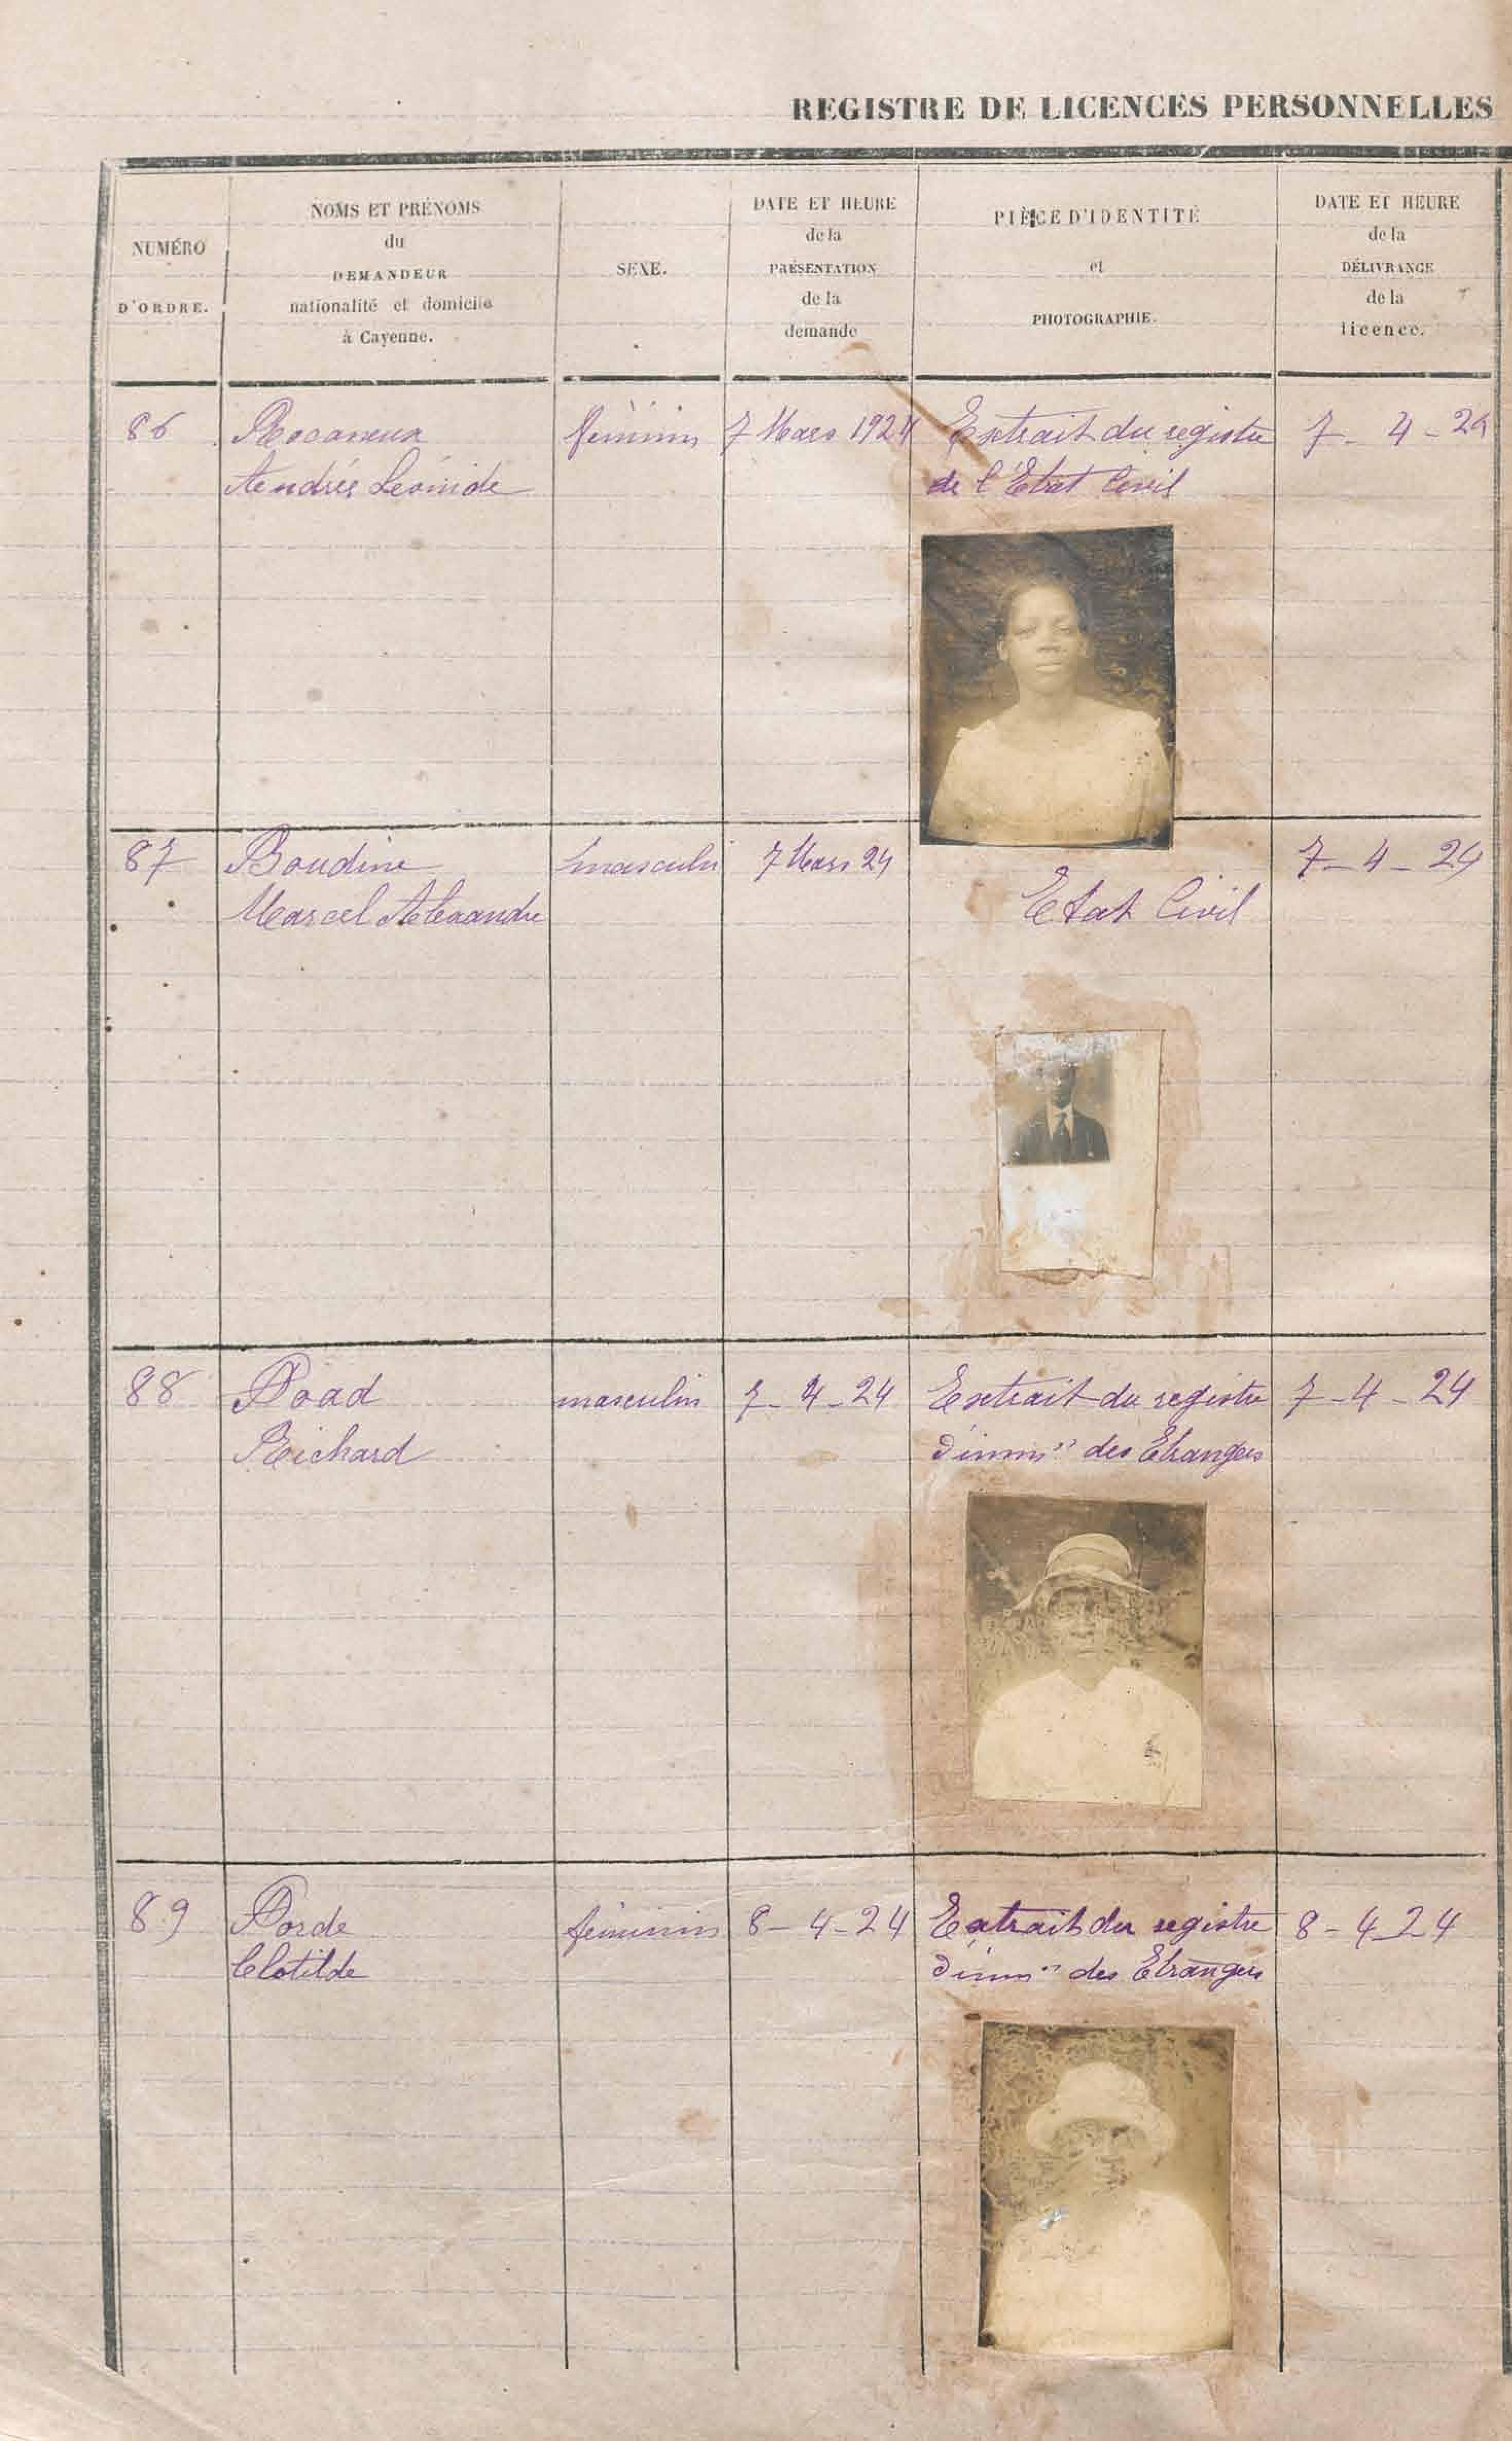 REGISTRE DE LICENCES PERSONNELLES
NUMÉRO
D'ORDRE.
NOMS ET PRÉNOMS
du
DEMANDEUR
nationalité et domicile
à Cayenne.
SEXE.
DATE ET HEURE
de la
PRÉSENTATION
de la
demande
PIÈCE D'IDENTITÉ
et
PHOTOGRAPHIE.
DATE ET HEURE
de la
DÉLIVRANCE
de la
licence.
86
Andrés Léonide
féminin
7 Mars 1924
Extrait du registre
de l'Etat Civil
7 - 4 - 24
87
Boudine
Marcel Alexandre
masculin
7 Mars 24
Etat Civil
7 - 4 - 24
88
Poad
Richard
masculin
7 - 4 - 24
Extrait du registre
d'imm^on des Etrangers
7 - 4 - 24
89
Clotilde
féminin
8 - 4 - 24
Extrait du registre
d'imm^on des Etrangers
8 - 4 - 24